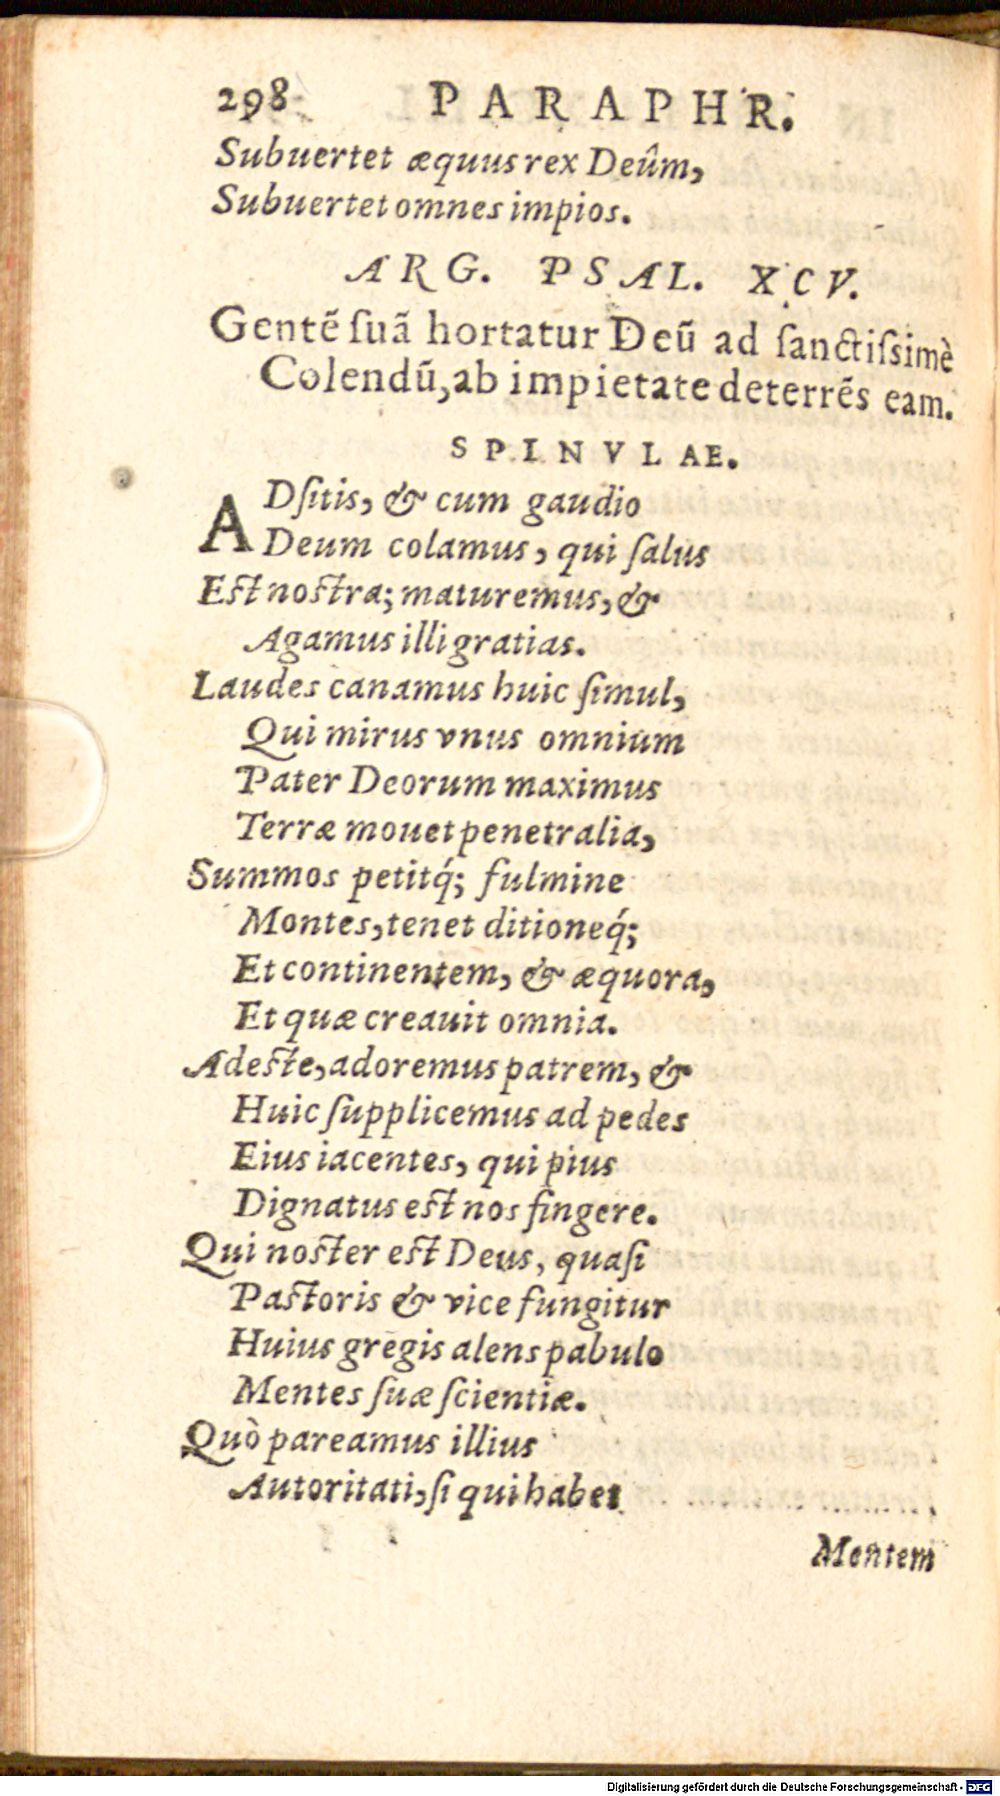 298 PARAPHR.
Subuertet æquus rex Deûm,
Subuertet omnes impios.
ARG. PSAL. XCV.
Gentẽ ſuã hortatur Deũ ad ſanctiſsimè
Colendũ, ab impietate deterrẽs eam.
SPINVLAE.
ADſitis, & cum gaudio
Deum colamus, qui ſalus
Eſt noſtra; maturemus, &
Agamus illi gratias.
Laudes canamus huic ſimul,
Qui mirus vnus omnium
Pater Deorum maximus
Terræ mouet penetralia,
Summos petitq́; fulmine
Montes, tenet ditioneq́;
Et continentem, & æquora,
Et quæ creauit omnia.
Adeſte, adoremus patrem, &
Huic ſupplicemus ad pedes
Eius iacentes, qui pius
Dignatus eſt nos fingere.
Qui noſter eſt Deus, quaſi
Paſtoris & vice fungitur
Huius gregis alens pabulo
Mentes ſuæ ſcientiæ.
Quò pareamus illius
Autoritati, ſi qui habet
Mentem
Digitalisierung gefördert durch die Deutsche Forschungsgemeinschaft - DFG